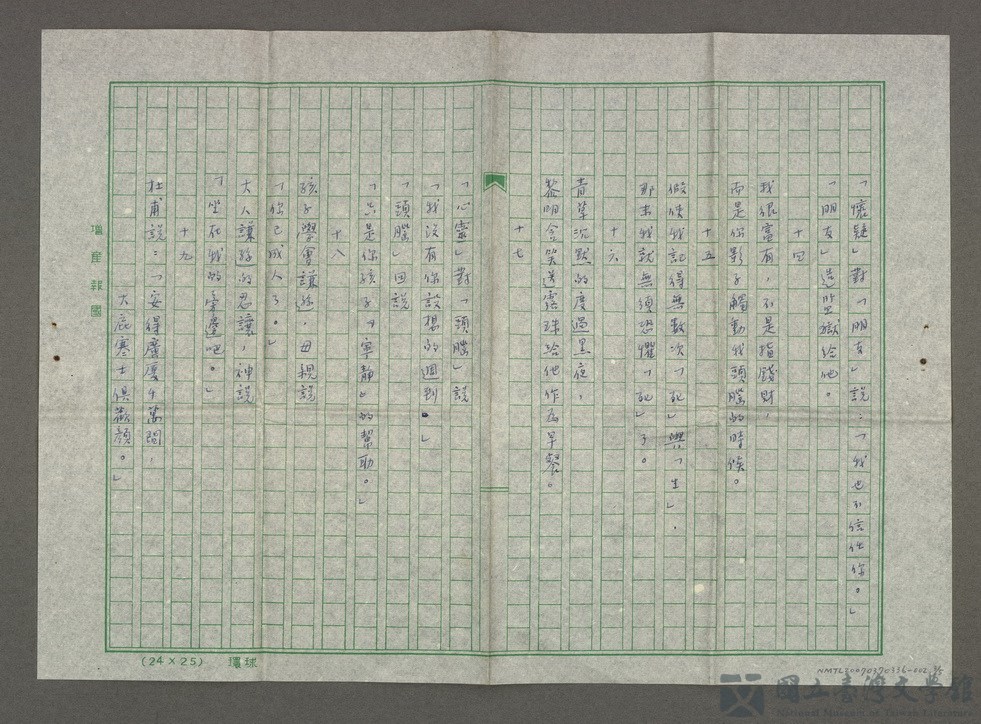 「懷疑」對「朋友」說：「我也不信任你。」
「朋友」造監獄給他。
十四
我很富有，不是指錢財，
而是你影子觸動我頭腦的時候。
十五
假使我記得無數次「死」與「生」，
那末我就無須恐懼「死」了。
十六
青草沉默的度過黑夜，
黎明含笑送露珠給他作為早餐。
十七
「心靈」對「頭腦」說
「我沒有你設想的週到。」
「頭腦」回說
「只是你孩子『寧靜』的幫助。」
十八
孩子學會讓步，母親說
「你已成人了。」
大人讓步的忍讓，神說
「坐在我的旁邊吧。」
十九
杜甫說：「安得廣廈千萬間，
大庇寒士俱歡顏。」
增產報國
(24×25) 環球
國立臺灣文學館
National Museum of Taiwan Literature